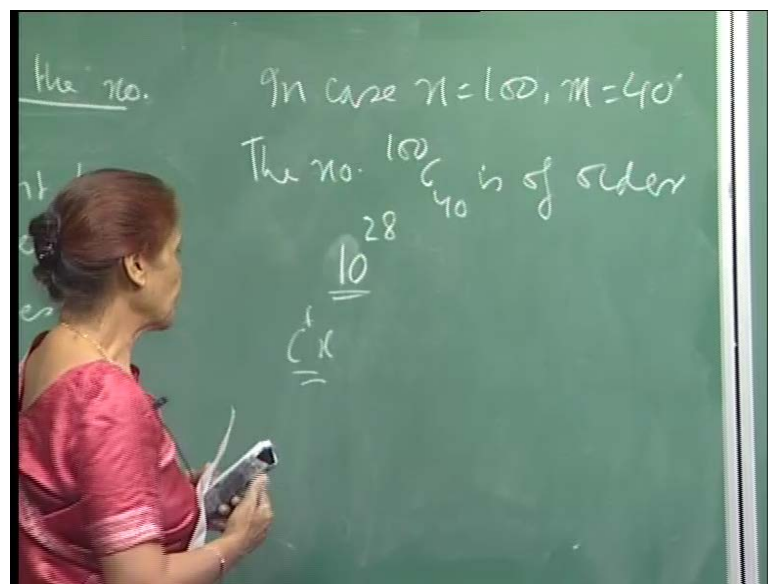 the no.
In case n=100, m=40
The no. ¹⁰⁰C₄₀ is of order
10²⁸
Cᵗx